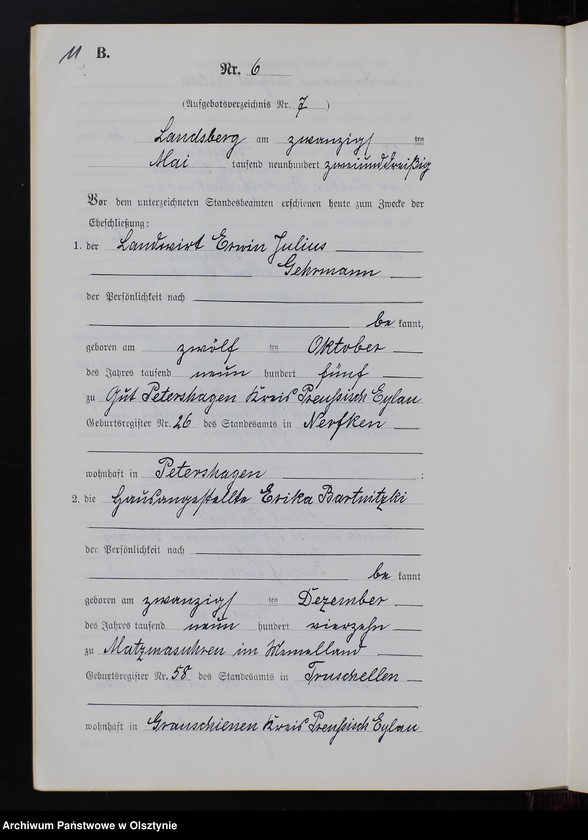 11 B.
Nr. 6
(Aufgebotsverzeichnis Nr. 7 )
Landsberg am zwanzigsten
Mai tausend neunhundert zweiunddreißig
Vor dem unterzeichneten Standesbeamten erschienen heute zum Zwecke der
Eheschließung:
1. der Landwirt Erwin Julius
Gehrmann
der Persönlichkeit nach
be kannt,
geboren am zwölf ten Oktober
des Jahres tausend neun hundert fünf
zu Gut Petershagen Kreis Preußisch Eylau
Geburtsregister Nr. 26 des Standesamts in Nerfken
wohnhaft in Petershagen ;
2. die Hausangestellte Erika Bartnitzki
der Persönlichkeit nach
be kannt
geboren am zwanzigs ten Dezember
des Jahres tausend neun hundert vierzehn
zu Matzmasuhren im Memelland
Geburtsregister Nr. 58 des Standesamts in Truschellen
wohnhaft in Grauschienen Kreis Preußisch Eylau
Archiwum Państwowe w Olsztynie